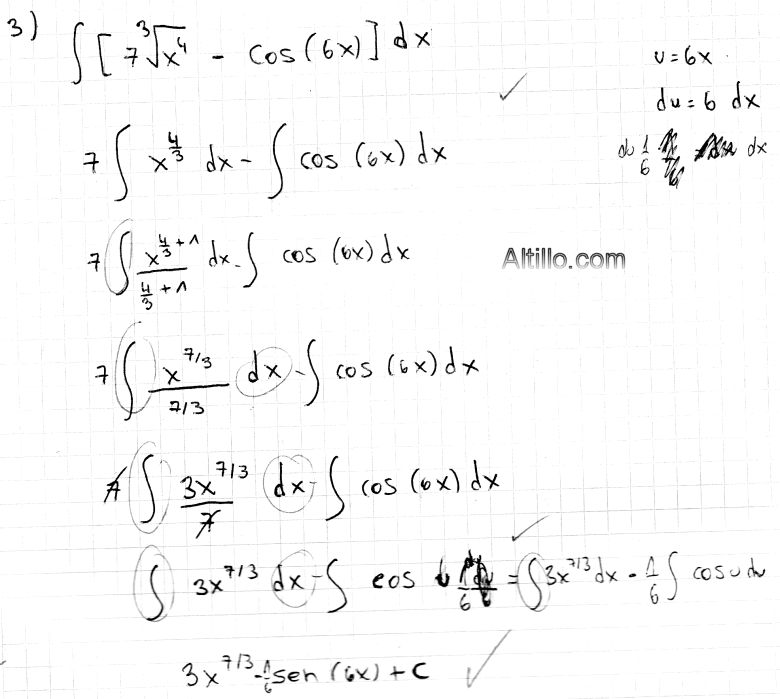 3) ∫ [ 7 ∛x⁴ - cos(6x) ] dx
u = 6x
du = 6 dx
du 1/6 dx
7 ∫ x^(4/3) dx - ∫ cos (6x) dx
7 ∫ x^(4/3 + 1) / (4/3 + 1) dx - ∫ cos (6x) dx
Altillo.com
7 ∫ x^(7/3) / (7/3) dx - ∫ cos (6x) dx
7 ∫ 3x^(7/3) / 7 dx - ∫ cos (6x) dx
∫ 3x^(7/3) dx - ∫ cos u du/6 = ∫ 3x^(7/3) dx - 1/6 ∫ cos u du
3x^(7/3) - 1/6 sen (6x) + C